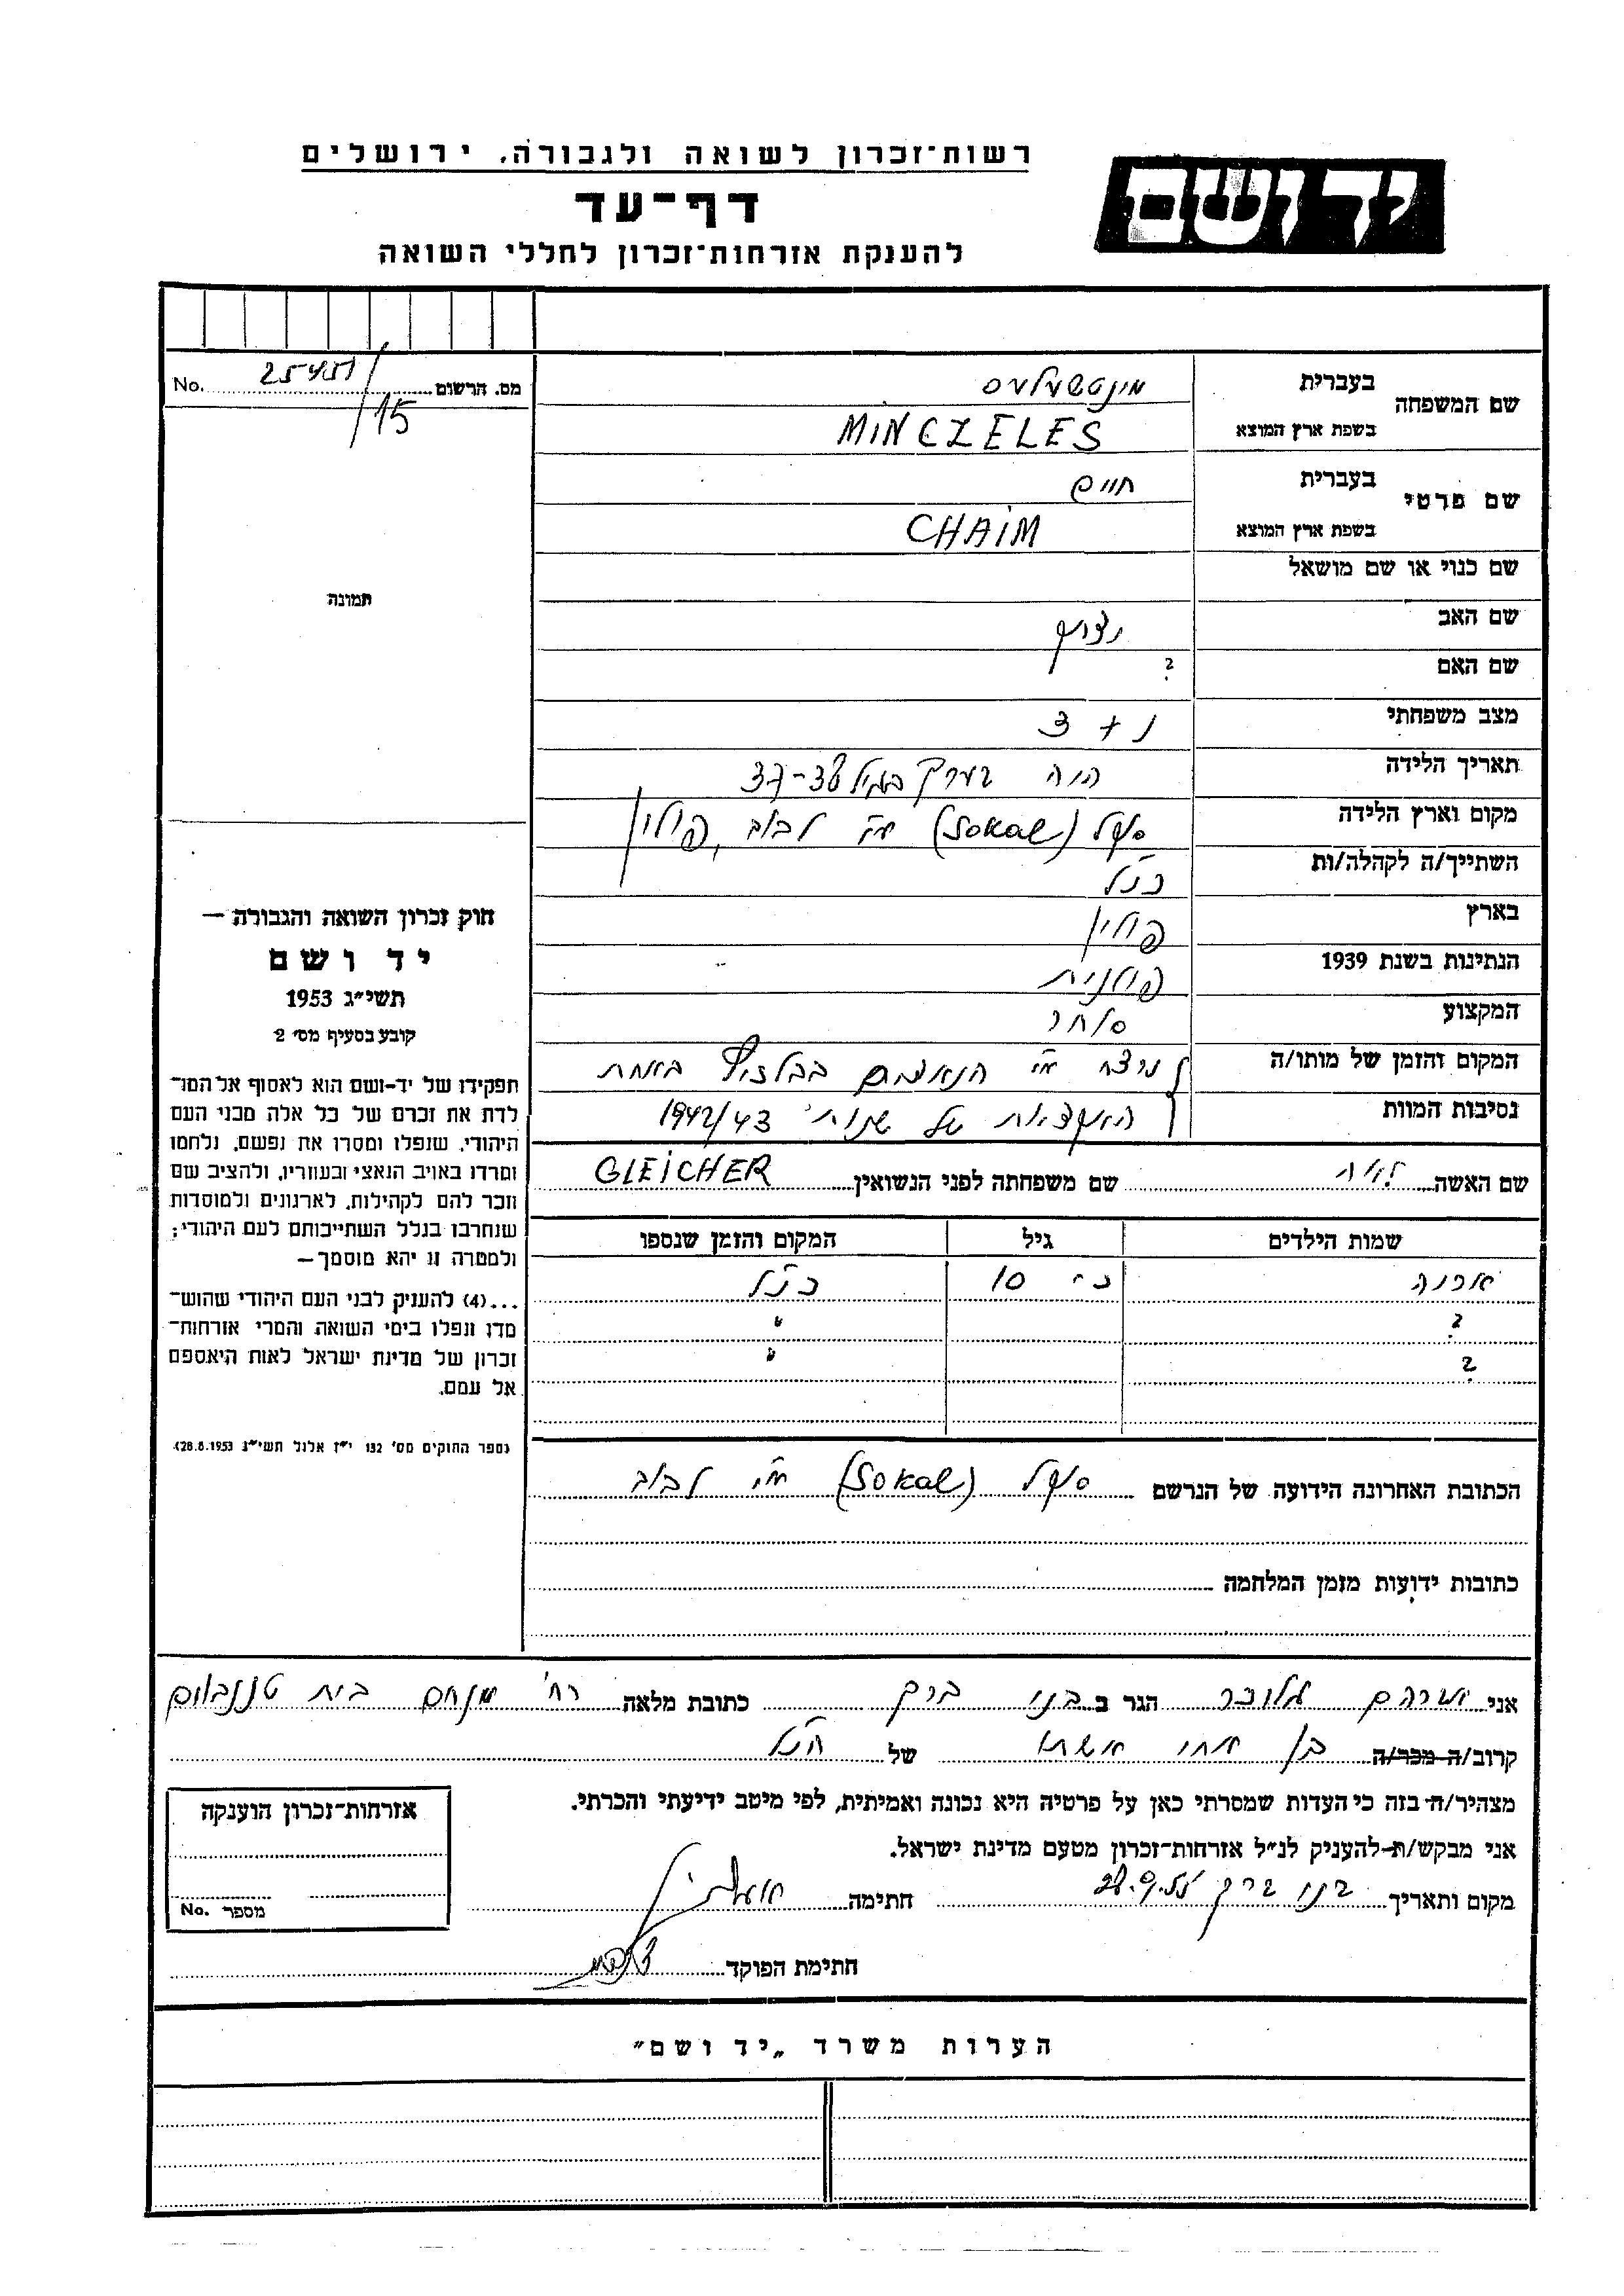 רשות־זכרון לשואה ולגבורה, ירושלים
יד ושם
דף־עד
להענקת אזרחות־זכרון לחללי השואה
מס. הרשום 25451/15 No.
שם המשפחה
בעברית מינטשעלעס
בשפת ארץ המוצא MINCZELES
שם פרטי
בעברית חיים
בשפת ארץ המוצא CHAIM
שם כנוי או שם מושאל
שם האב
שם האם ?
מצב משפחתי נ + 3
תאריך הלידה היה בערך בגיל 37-38
מקום וארץ הלידה סוקל (Sokal) ע"י לבוב, פולין
השתייך/ה לקהלה/ות כנ"ל
בארץ פולין
הנתינות בשנת 1939 פולנית
המקצוע סוחר
המקום והזמן של מותו/ה נרצח ע"י הנאצים בבלזיץ באחת
נסיבות המוות האקציות של שנות 1942/43
שם האשה לאה שם משפחתה לפני הנשואין GLEICHER
שמות הילדים גיל המקום והזמן שנספו
כ- 10 כנ"ל
? "
? "
הכתובת האחרונה הידועה של הנרשם סוקל (Sokal) ע"י לבוב
כתובות ידועות מזמן המלחמה
תמונה
חוק זכרון השואה והגבורה –
יד ושם
תשי״ג 1953
קובע בסעיף מס׳ 2
תפקידו של יד-ושם הוא לאסוף אל המו־
לדת את זכרם של כל אלה מבני העם
היהודי, שנפלו ומסרו את נפשם, נלחמו
ומרדו באויב הנאצי ובעוזריו, ולהציב שם
וזכר להם לקהילות, לארגונים ולמוסדות
שנחרבו בגלל השתייכותם לעם היהודי;
ולמטרה זו יהא מוסמך –
...(4) להענק לבני העם היהודי שהוש־
מדו ונפלו בימי השואה והמרי אזרחות־
זכרון של מדינת ישראל לאות היאספם
אל עמם.
(ספר החוקים מס׳ 132 י״ז אלול תשי״ג 28.8.1953)
אני אברהם גלוכר הגר ב בני ברק כתובת מלאה רח' מנחם בית טננבאום
קרוב/ה מכר/ה בן אחי אשתו של הנ"ל
מצהיר/ה בזה כי העדות שמסרתי כאן על פרטיה היא נכונה ואמיתית, לפי מיטב ידיעתי והכרתי.
אני מבקש/ת להעניק לנ״ל אזרחות־זכרון מטעם מדינת ישראל.
מקום ותאריך בני ברק חתימה
חתימת הפוקד
אזרחות־זכרון הוענקה
מספר No.
הערות משרד „יד ושם״